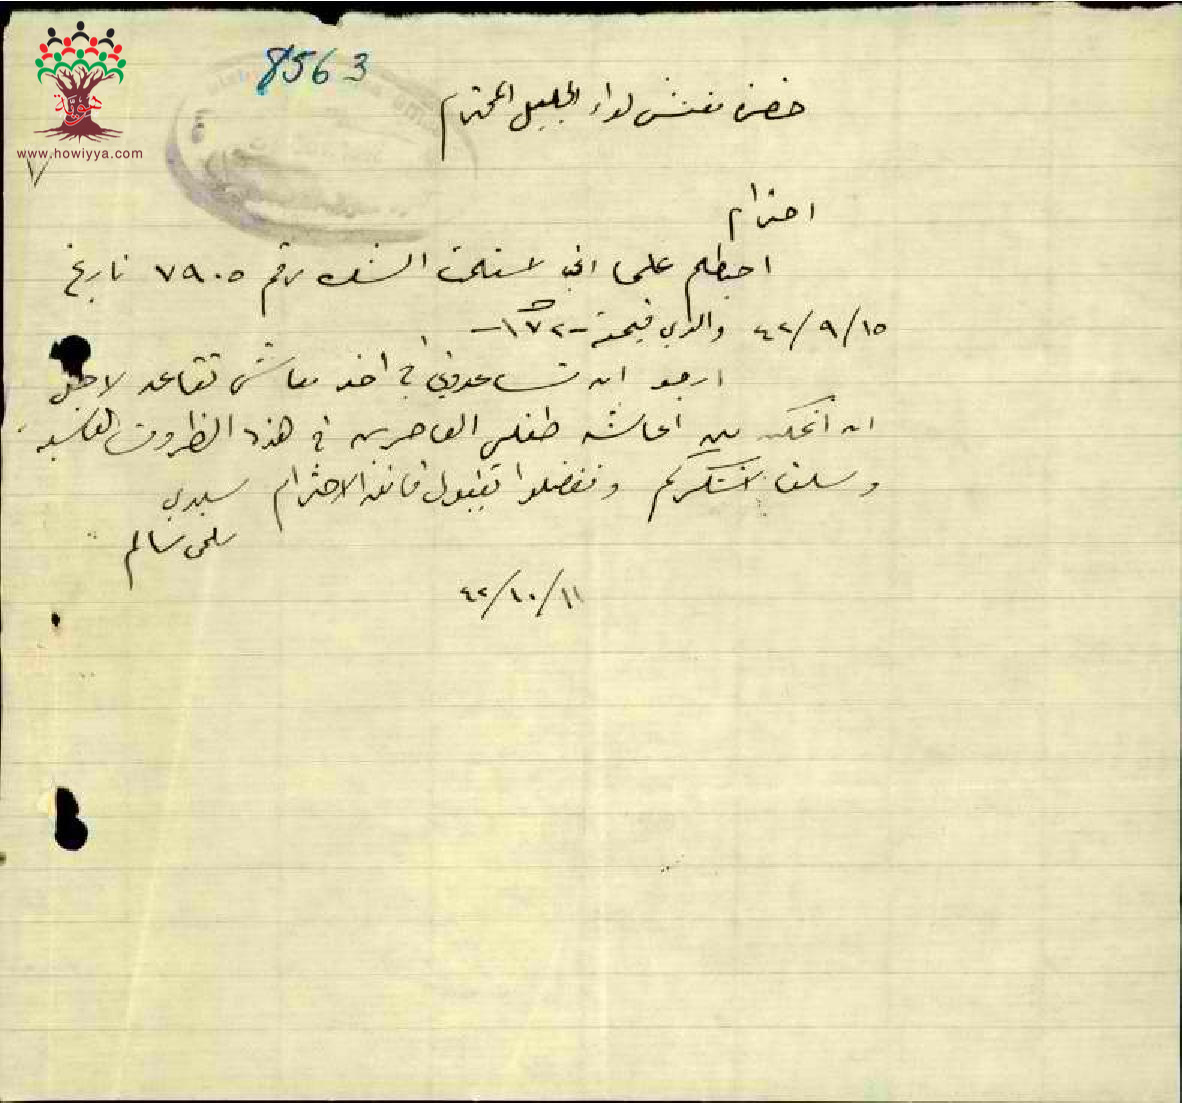 8563
هوية
www.howiyya.com
حضرة مفتش لواء الجليل المحترم
احترام
احيطكم علما اني استلمت الشك رقم ٧٩٠٥ تاريخ
٤٢/٩/١٥ والذي قيمته -١٧٢-
ارجو ان تساعدوني في اخذ معاش تقاعد لاجل
ان اتمكن من اعاشة طفلي القاصرين في هذه الظروف القاسية
وسلفا اشكركم وتفضلوا بقبول فائق الاحترام سيدي
سلمى سالم
٤٢/١٠/١١